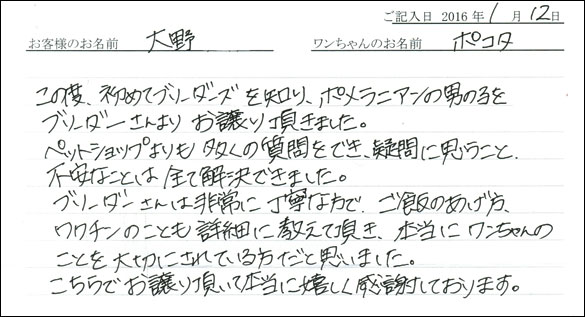 ご記入日 2016年 1月 12日
お客様のお名前 大野 ワンちゃんのお名前 ポコタ
この度、初めてブリーダーズを知り、ポメラニアンの男の子を
ブリーダーさんより お譲り頂きました。
ペットショップよりも多くの質問をでき、疑問に思うこと、
不安なことは全て解決できました。
ブリーダーさんは非常に丁寧な方で、ご飯のあげ方、
ワクチンのことも詳細に教えて頂き、本当にワンちゃんの
ことを大切にされている方だと思いました。
こちらでお譲り頂いて本当に嬉しく感謝しております。